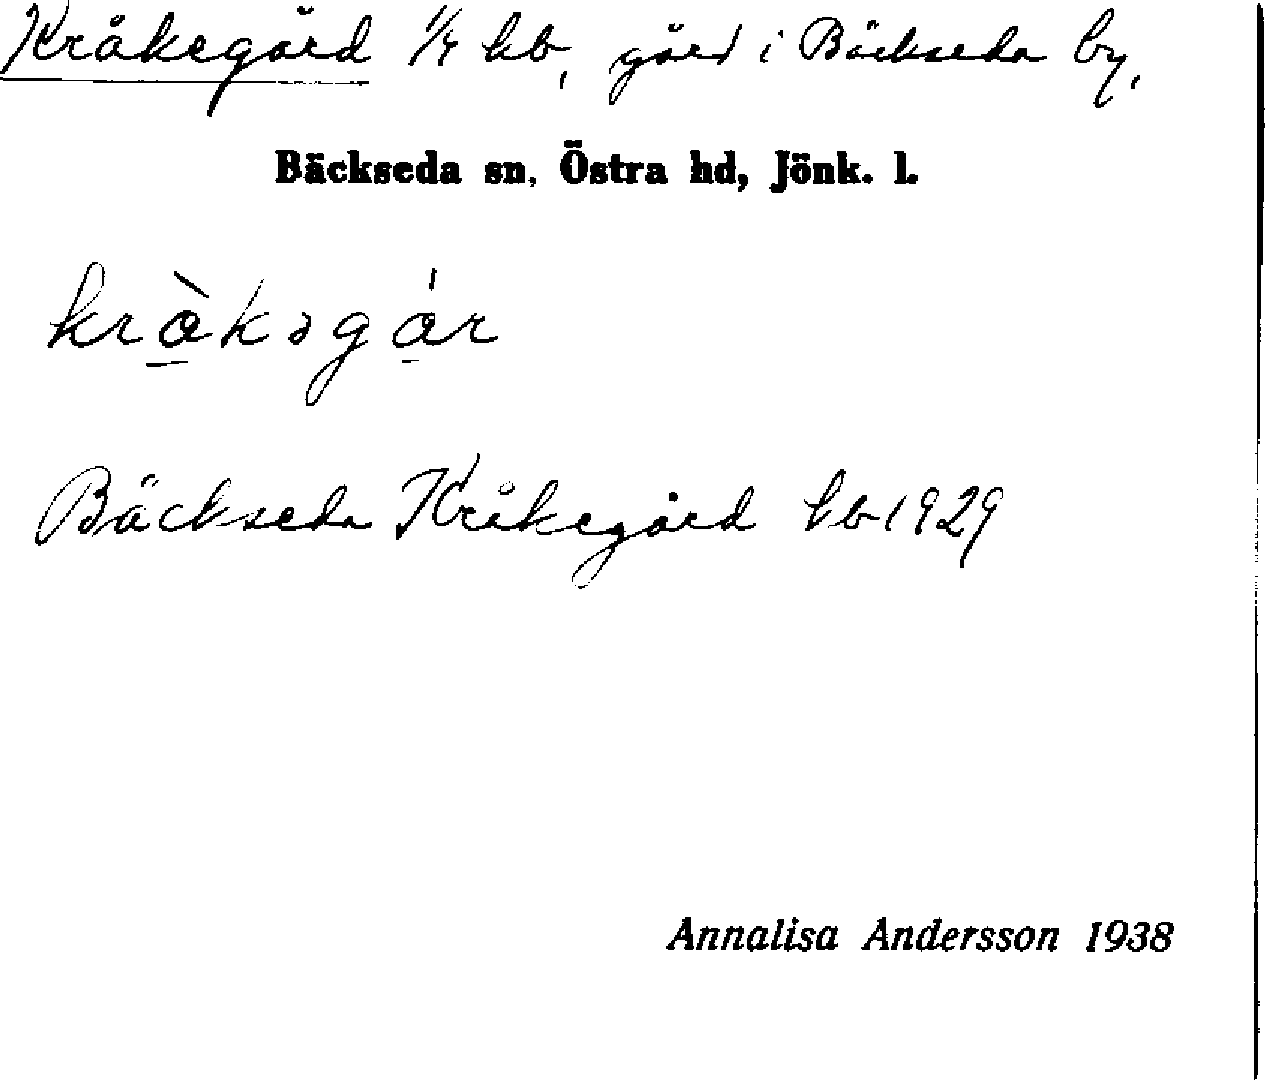 Kråkegård 1/4 hb, gård i Bäckseda by,
Bäckseda sn, Östra hd, Jönk. l.
kràkəgár
Bäckseda Kråkegård kb 1929
Annalisa Andersson 1938